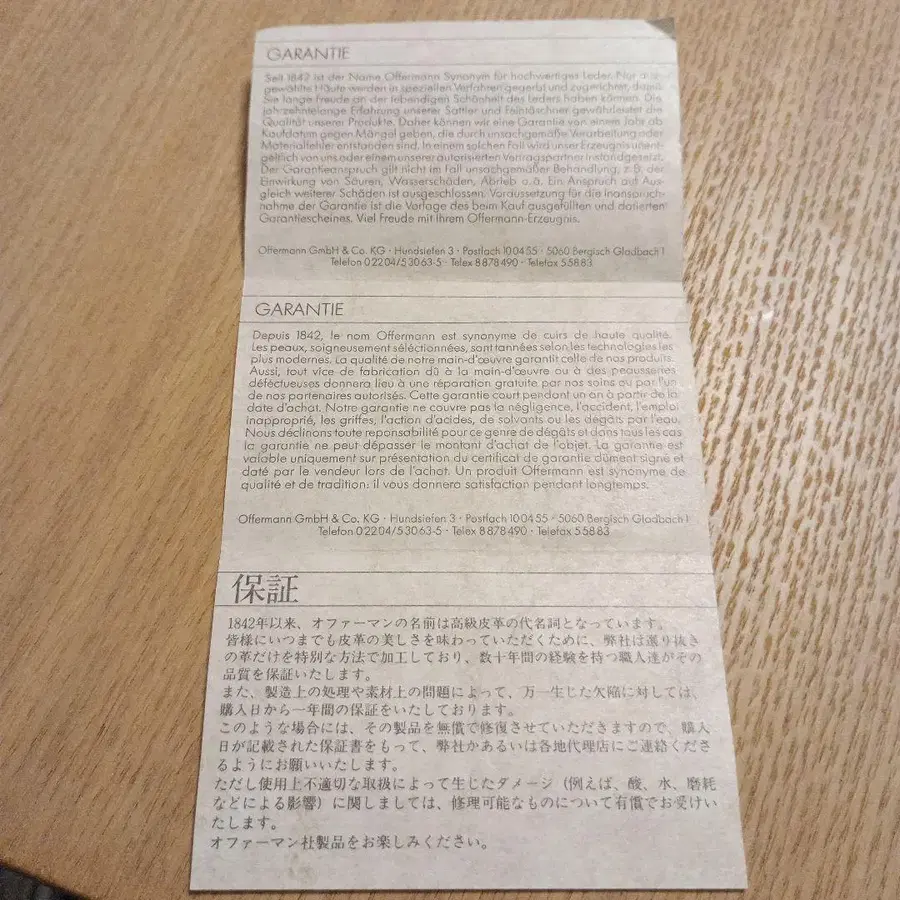 GARANTIE
Seit 1842 ist der Name Offermann Synonym für hochwertiges Leder. Nur aus-
gewählte Häute werden in speziellen Verfahren gegerbt und zugerichtet, damit
Sie lange Freude an der lebendigen Schönheit des Leders haben können. Die
jahrzehntelange Erfahrung unserer Sattler und Feintäschner gewährleistet die
Qualität unserer Produkte. Daher können wir eine Garantie von einem Jahr ab
Kaufdatum gegen Mängel geben, die durch unsachgemäße Verarbeitung oder
Materialfehler entstanden sind. In einem solchen Fall wird unser Erzeugnis unent-
geltlich von uns oder einem unserer autorisierten Vertragspartner instandgesetzt.
Der Garantieanspruch gilt nicht im Fall unsachgemäßer Behandlung, z.B. der
Einwirkung von Säuren, Wasserschäden, Abrieb o.ä. Ein Anspruch auf Aus-
gleich weiterer Schäden ist ausgeschlossen. Voraussetzung für die Inanspruch-
nahme der Garantie ist die Vorlage des beim Kauf ausgefüllten und datierten
Garantiescheines. Viel Freude mit Ihrem Offermann-Erzeugnis.
Offermann GmbH & Co. KG · Hundsiefen 3 · Postfach 10 04 55 · 5060 Bergisch Gladbach 1
Telefon 0 22 04/5 30 63-5 · Telex 8 878 490 · Telefax 5 58 83
GARANTIE
Depuis 1842, le nom Offermann est synonyme de cuirs de haute qualité.
Les peaux, soigneusement séléctionnées, sont tannées selon les technologies les
plus modernes. La qualité de notre main-d'œuvre garantit celle de nos produits.
Aussi, tout vice de fabrication dû à la main-d'œuvre ou à des peausseries
défectueuses donnera lieu à une réparation gratuite par nos soins ou par l'un
de nos partenaires autorisés. Cette garantie court pendant un an à partir de la
date d'achat. Notre garantie ne couvre pas la négligence, l'accident, l'emploi
inapproprié, les griffes, l'action d'acides, de solvants ou les dégâts par l'eau.
Nous déclinons toute reponsabilité pour ce genre de dégâts et dans tous les cas
la garantie ne peut dépasser le montant d'achat de l'objet. La garantie est
valable uniquement sur présentation du certificat de garantie dûment signé et
daté par le vendeur lors de l'achat. Un produit Offermann est synonyme de
qualité et de tradition: il vous donnera satisfaction pendant longtemps.
Offermann GmbH & Co. KG · Hundsiefen 3 · Postfach 10 04 55 · 5060 Bergisch Gladbach 1
Telefon 0 22 04/5 30 63-5 · Telex 8 878 490 · Telefax 5 58 83
保証
1842年以来、オファーマンの名前は高級皮革の代名詞となっています。
皆様にいつまでも皮革の美しさを味わっていただくために、弊社は選り抜き
の革だけを特別な方法で加工しており、数十年間の経験を持つ職人達がその
品質を保証いたします。
また、製造上の処理や素材上の問題によって、万一生じた欠陥に対しては、
購入日から一年間の保証をいたしております。
このような場合には、その製品を無償で修復させていただきますので、購入
日が記載された保証書をもって、弊社かあるいは各地代理店にご連絡くださ
るようにお願いいたします。
ただし使用上不適切な取扱によって生じたダメージ（例えば、酸、水、磨耗
などによる影響）に関しましては、修理可能なものについて有償でお受けい
たします。
オファーマン社製品をお楽しみください。